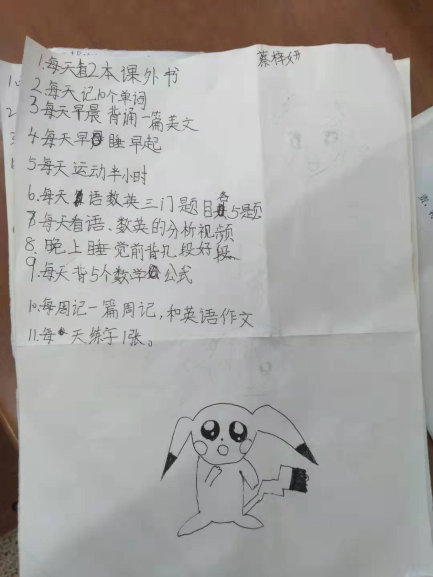 蔡梓妍
1.每天看2本课外书
2.每天记10个单词
3每天早晨背诵一篇英文
4每天早睡早起
5每天运动半小时
6.每天语数英三门题目各5题
7每天看语、数英的分析视频
8.晚上睡觉前背几段好段
9.每天背5个数学公式
10.每周记一篇周记,和英语作文
11.每天练字1张。